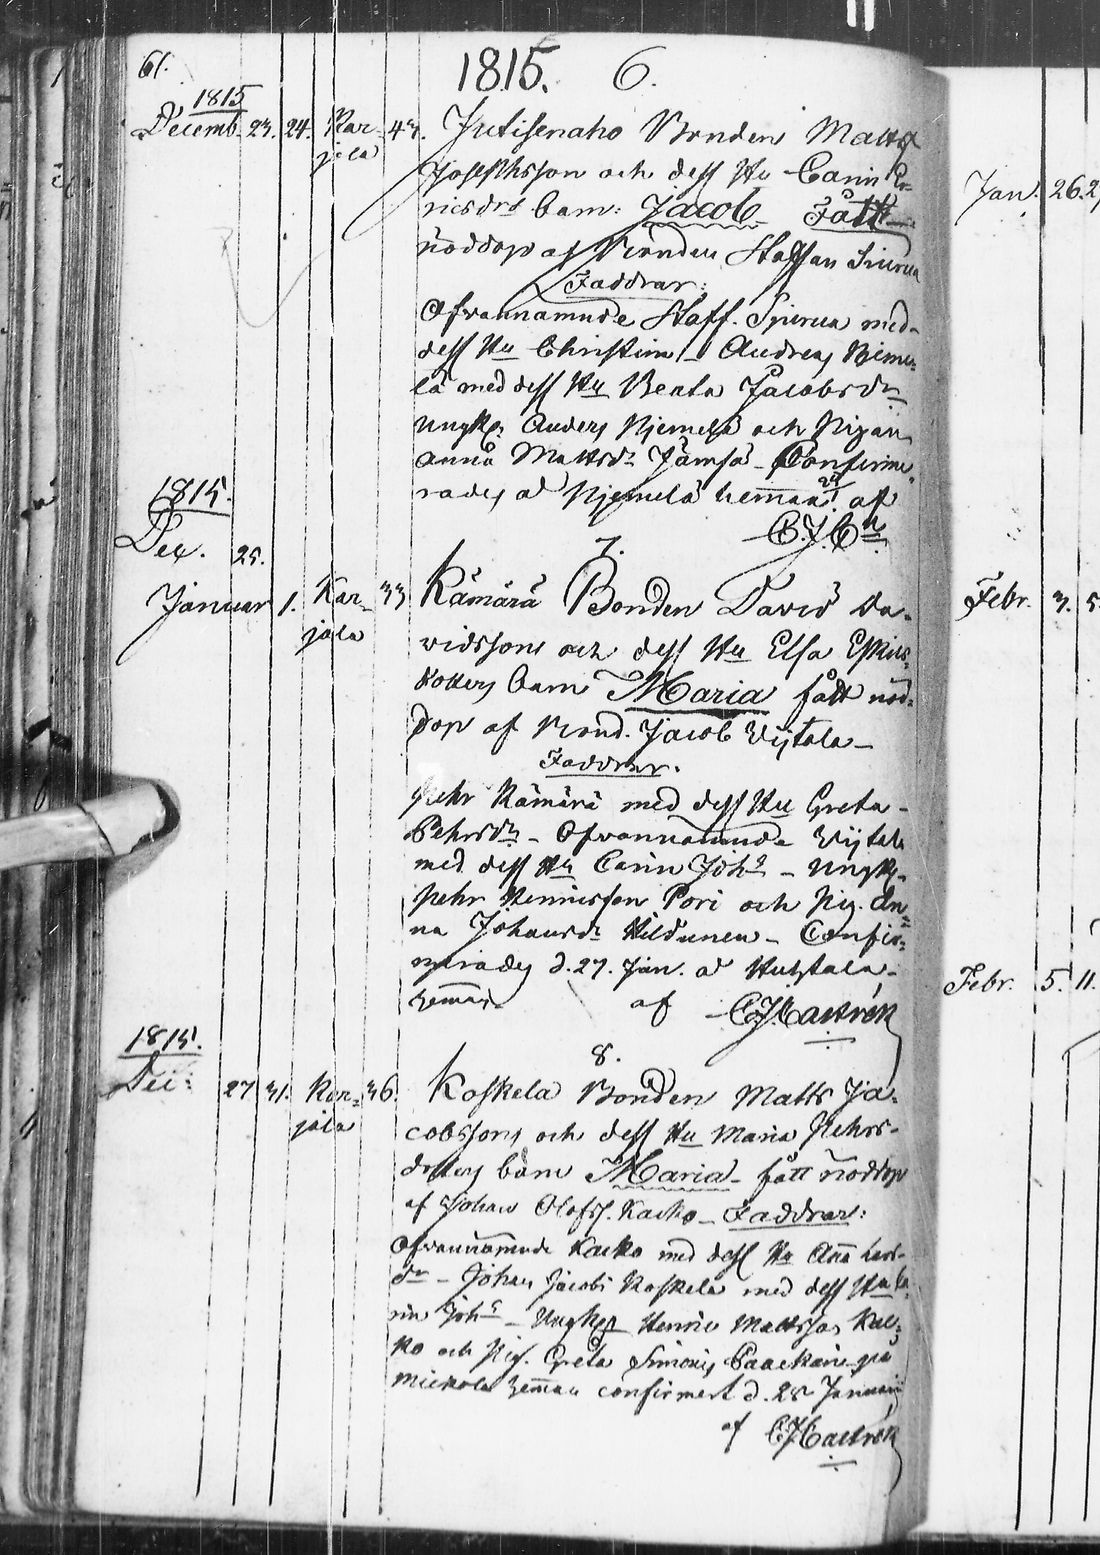 61. 1815. 6.
1815
Decemb. 23. 24. Kar- 43. Jutisenaho Bonden Matts
jola Josephsson och dess Hu Carin
ricsdrs barn: Jacob Fått
nöddop af Bonden Staffan
Faddrar:
Ofvannämnde Staff. med
dess Hu Christina - Andreas Njeme-
lä med dess Hu Beata Jacobsdr
ungk: Anders Njemelä och Pigan
Anna Mattsdr Jämsä - Confirme-
rades å Njemelä hemman af
C.J.Cn
1815.
Dec. 25.
7.
Januar 1. Kar- 33 Kämärä Bonden David Da-
jola vidssons och dess Hu Elsa
dotters barn Maria fått nöd-
dop af Bond. Jacob Vijtala -
Faddrar.
Pehr Kämärä med dess Hu Greta -
Pehrsdr - Ofvannämnde Vijtala
med dess Hu Carin Johs - ungk.
Pehr Henricsson Pori och Pig. An-
na Johansdr Hildunen - Confir-
merades d. 27. Jan. å
hemman af C.J.Castrén
1815.
8.
Dec: 27 31. Kar- 36. Koskela Bonden Matts Ja-
jola cobssons och dess Hu Maria Pehrs-
dotters barn Maria - fått nöddop
af Johan Olofss. Kacko - Faddrar:
Ofvannämnde Kacko med dess Hu Anna
dr - Johan Jacobs Koskela med dess Hu Ca-
rin Johs - Ungk Henric Mattsson Kac-
ko och Pig. Greta Simons på
Mickola hemman confirmert d. 28 Januarii
af C.J.Castrén
Jan. 26.
Febr. 3. 5.
Febr. 5. 11.